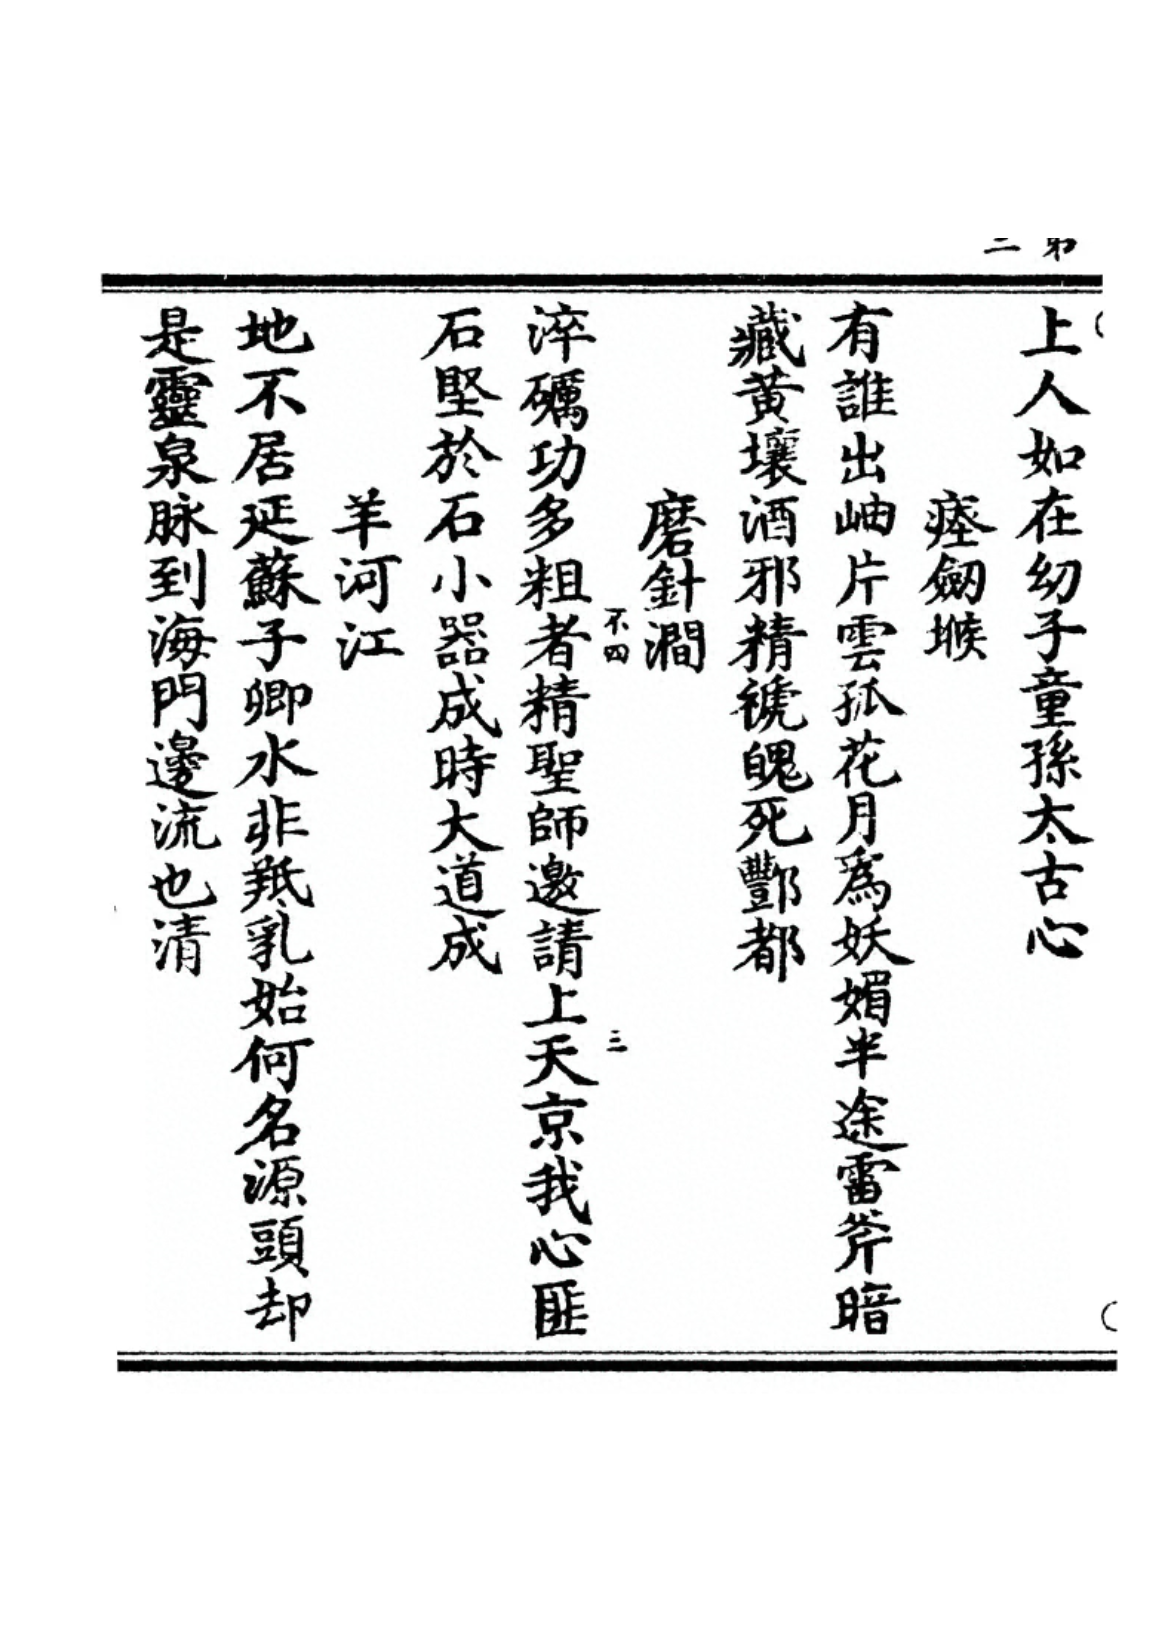 第三
上人如在幼子童孫太古心
瘞劒堠
有誰出岫片雲孤花月爲妖媚半途雷斧暗
藏黄壤酒邪精褫魄死酆都
磨針澗
不四
三
淬礪功多粗者精聖師邀請上天京我心匪
石堅於石小器成時大道成
羊河江
地不居延蘇子卿水非羝乳始何名源頭却
是靈泉脉到海門邊流也清